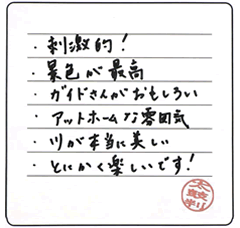 ・刺激的！
・景色が最高
・ガイドさんがおもしろい
・アットホームな雰囲気
・川が本当に美しい
・とにかく楽しいです！
太鼓判